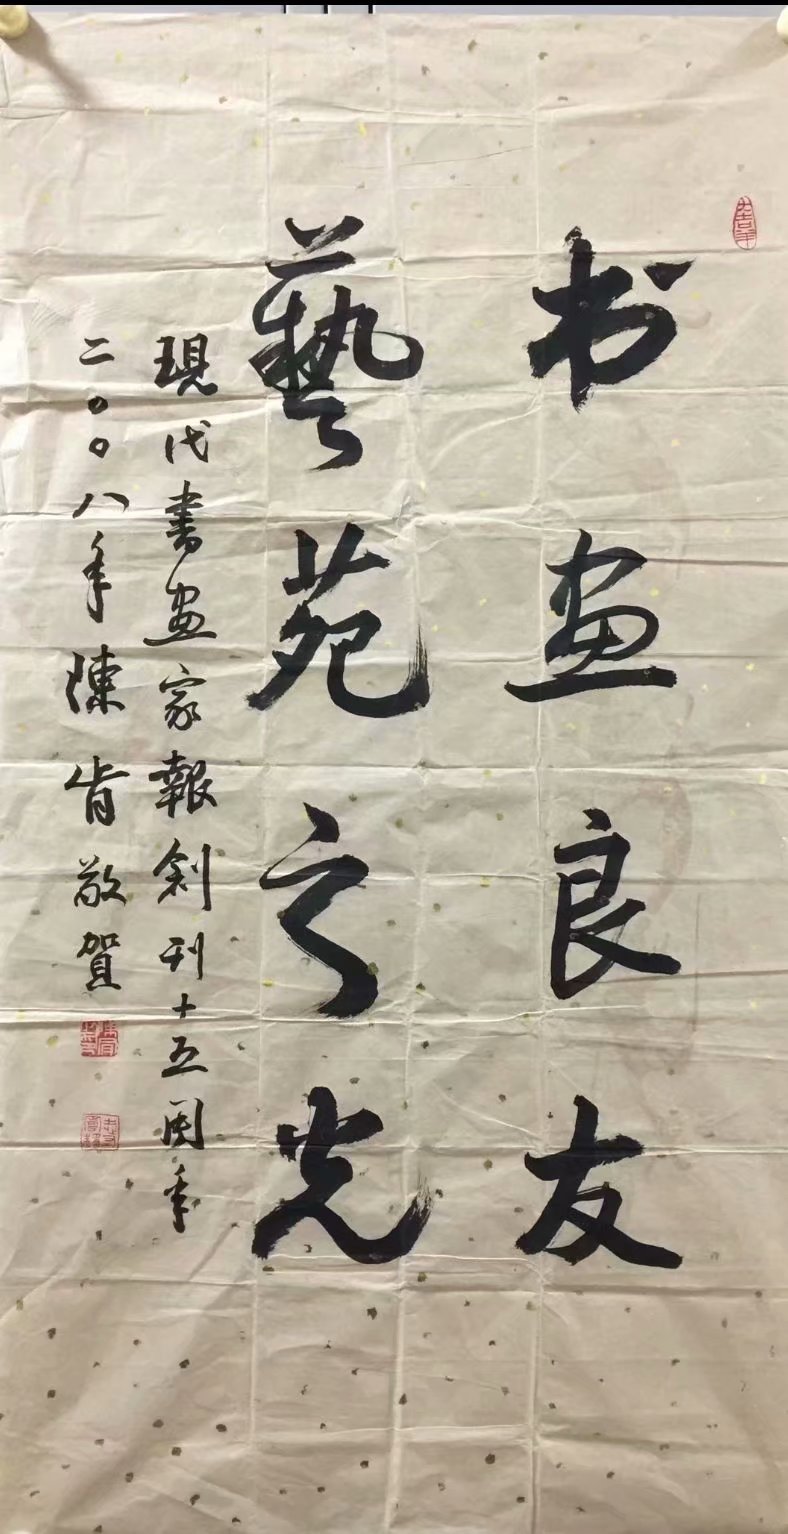 书画良友
藝苑之光
現代書画家報創刊十五周年
二〇〇八年陳肯敬賀